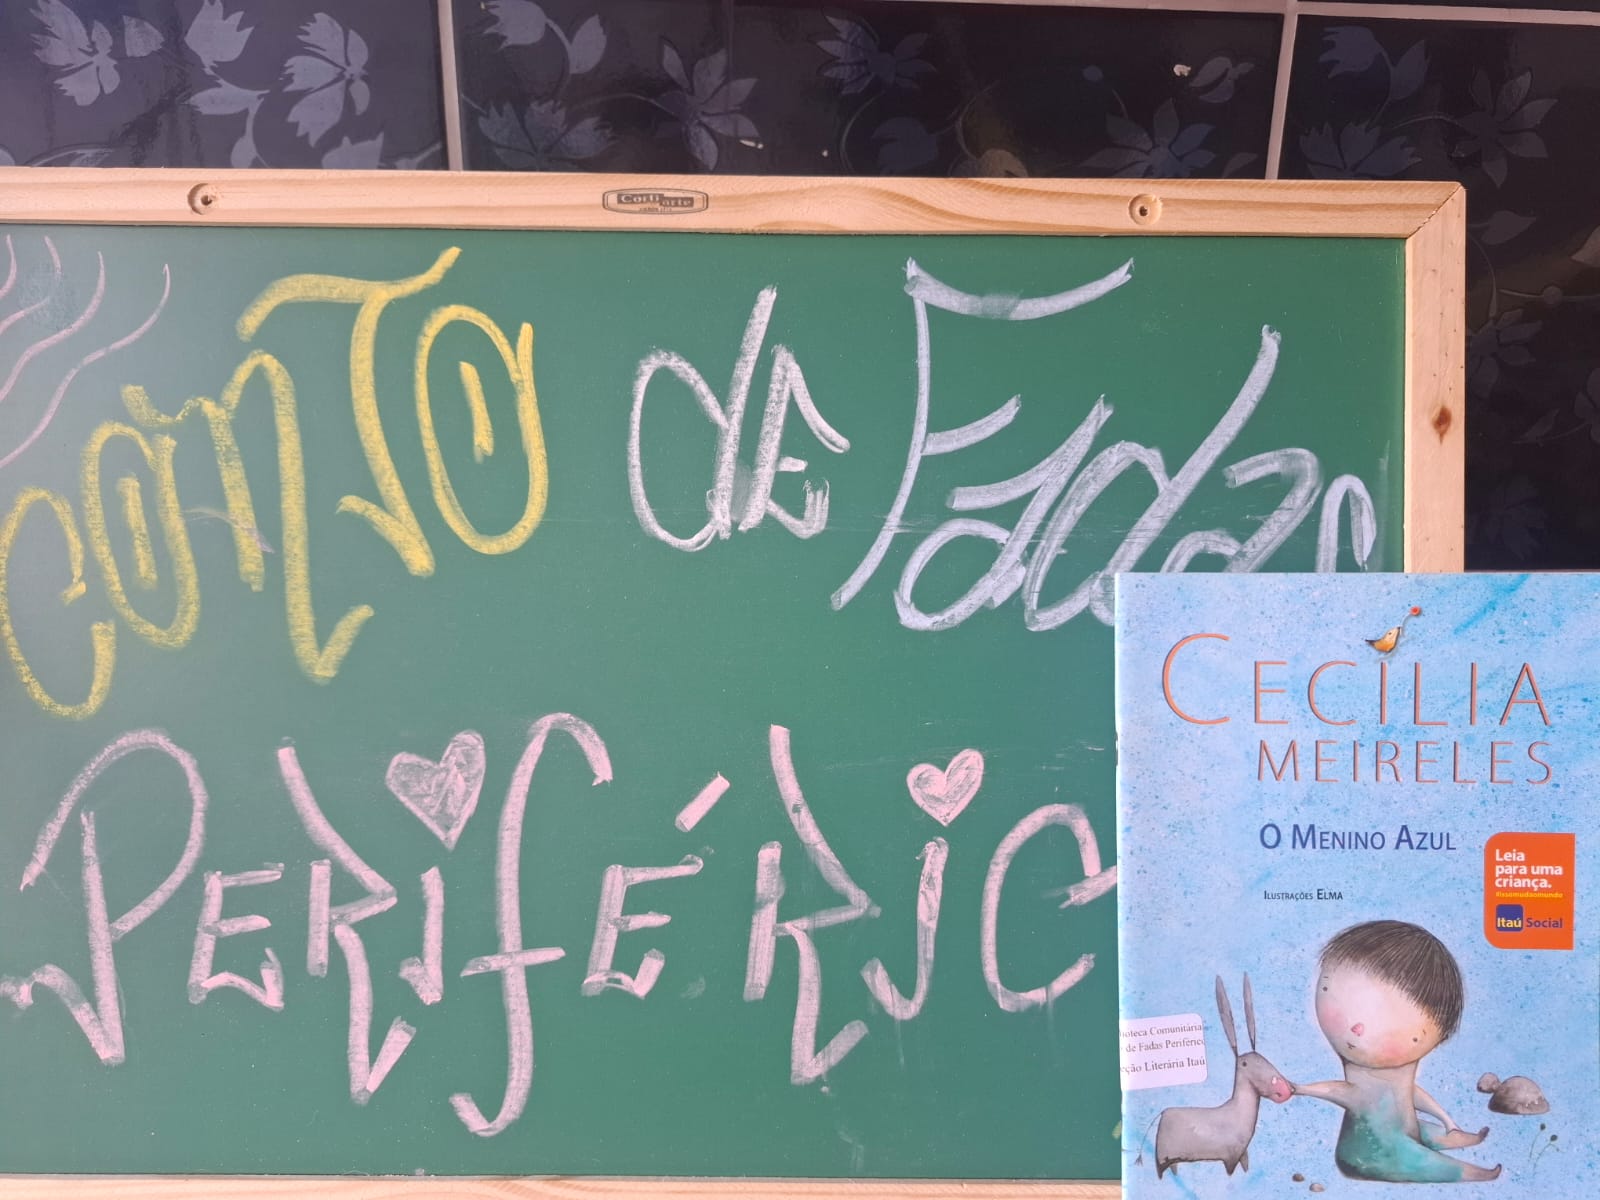 Corti arte
CONTO de Fadas
PERIFÉRIC
CECÍLIA
MEIRELES
O MENINO AZUL
ILUSTRAÇÕES ELMA
Leia
para uma
criança.
#issomudaomundo
Itaú Social
ioteca Comunitária
de Fadas Periféric
eção Literária Itaú